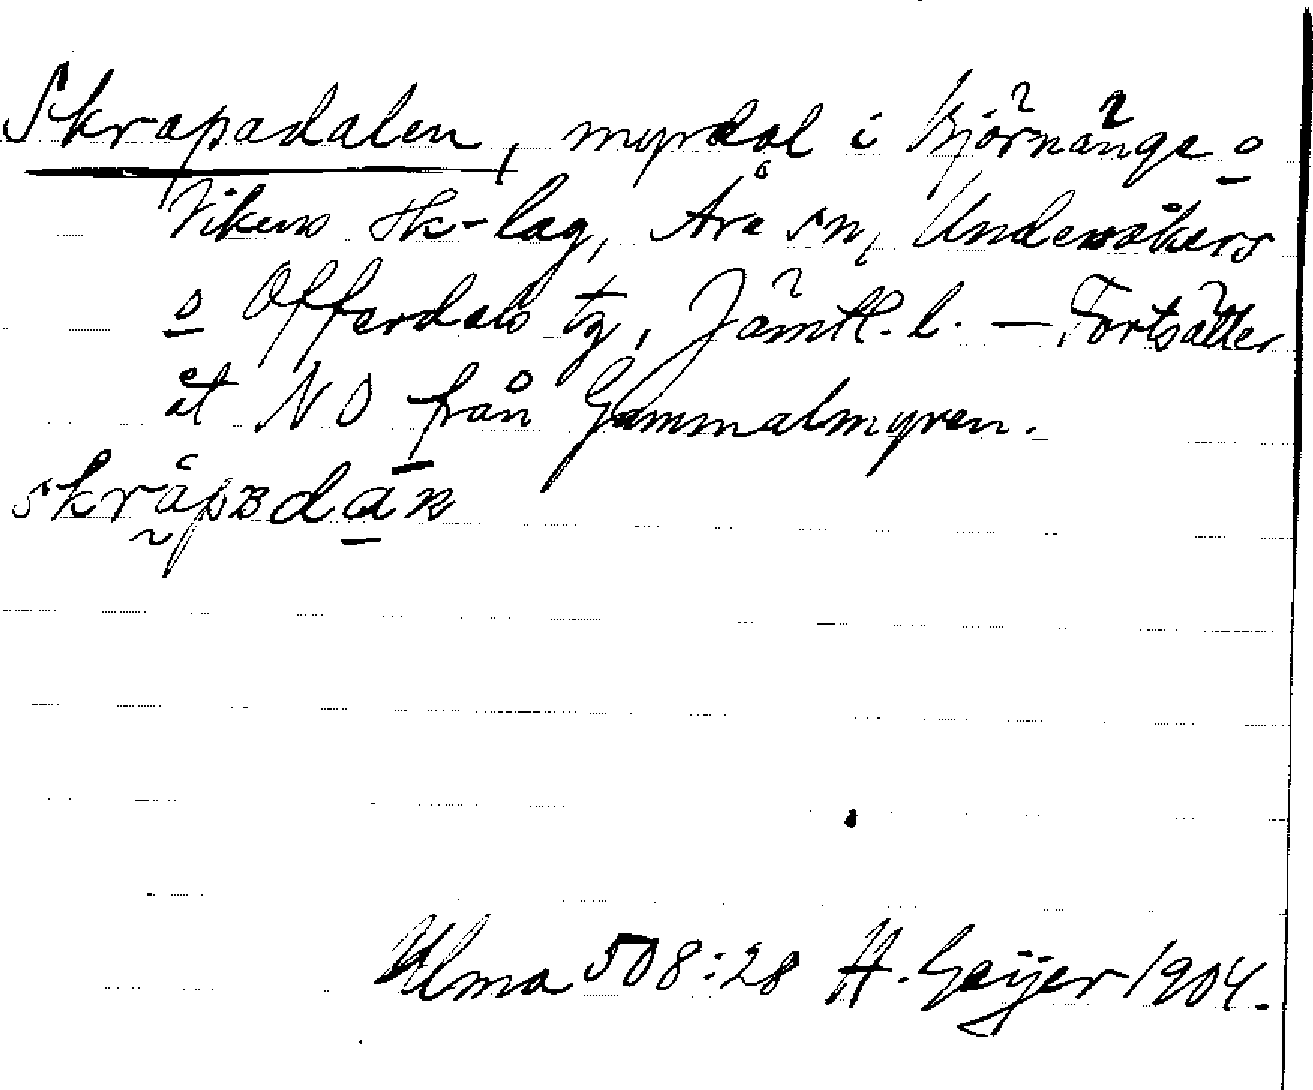 Skrapadalen, myrdal i Björnänge o
Vikens sk-lag, Åre sn, Undersåkers
o Offerdals tg, Jämtl. l. — Fortsätter
åt NO från Gammalmyren.
Ulma 508:28 H. Geijer 1904.